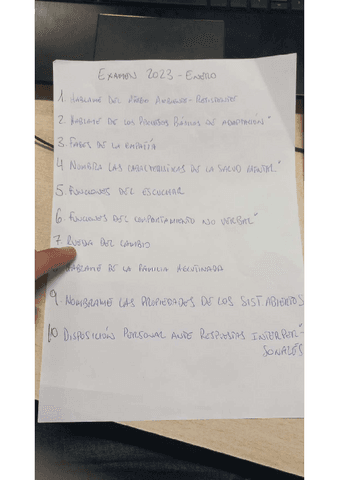 EXAMEN 2023 - ENERO
1. HABLAME DEL ÁREA AMBIENTE - RESIDENTE
2. HABLAME DE LOS PROCESOS BÁSICOS DE ADAPTACIÓN"
3. FASES DE LA EMPATÍA
4 NOMBRA LAS CARACTERÍSTICAS DE LA SALUD MENTAL"
5. FUNCIONES DEL ESCUCHAR
6. FUNCIONES DEL COMPORTAMIENTO NO VERBAL"
7. RUEDA DEL CAMBIO
HABLAME DE LA FAMILIA AGLUTINADA
9. NOMBRAME LAS PROPIEDADES DE LOS SIST ABIERTOS
10 DISPOSICIÓN PERSONAL ANTE RESPUESTAS INTERPER-
SONALES